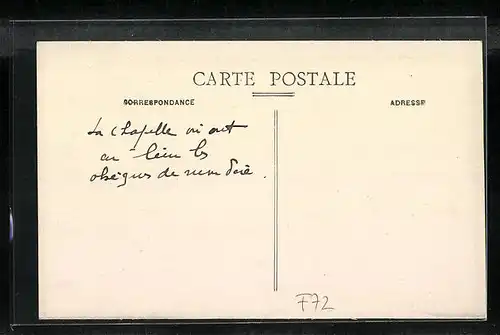 CARTE POSTALE
CORRESPONDANCE
ADRESSE
La Chapelle où ont
eu lieu les
obsèques de mon
F72